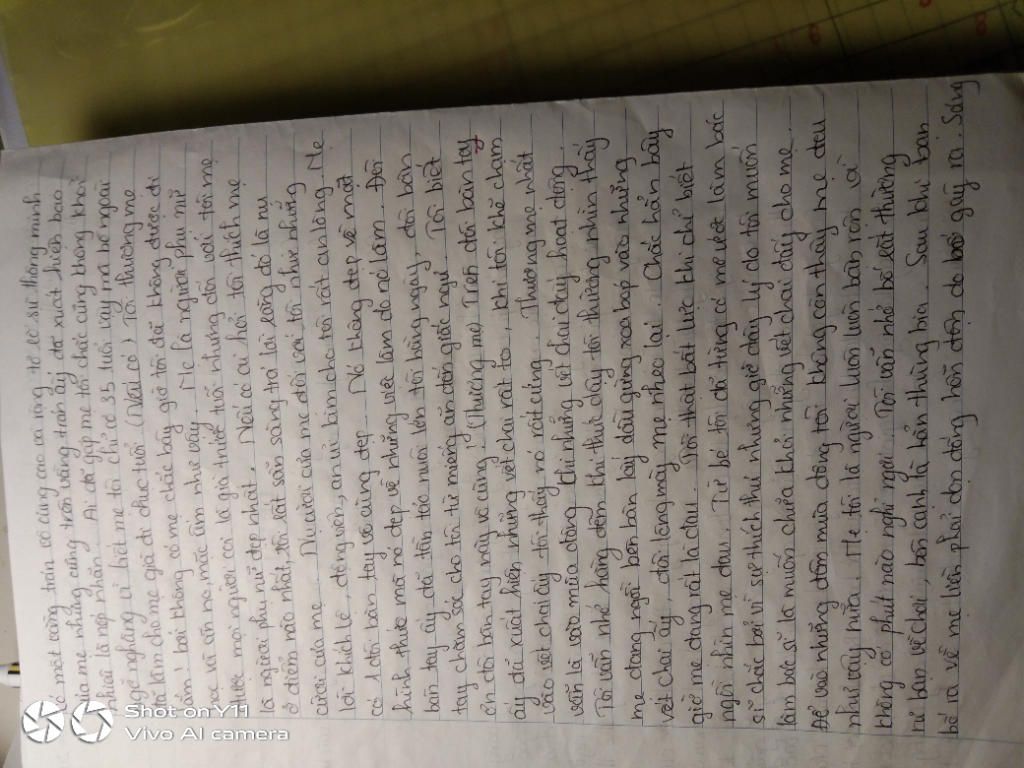 có một vầng trán vô cùng cao và rộng tỏ rõ sự thông minh
của mẹ nhưng cũng trên vầng trán ấy đã xuất hiện bao
nhiêu là nếp nhăn. Ai đã gặp mẹ tôi chắc cũng không khỏi
ngỡ ngàng vì biết mẹ tôi chỉ có 35 tuổi vậy mà bề ngoài
lại làm cho mẹ già đi chục tuổi (Nếu có) Tôi thương mẹ
lắm! bởi không có mẹ chắc bây giờ tôi đã không được đi
học và ăn no mặc ấm như vậy. Mẹ là người phụ nữ
được mọi người coi là già trước tuổi nhưng đối với tôi mẹ
là người phụ nữ đẹp nhất. Nếu có ai hỏi tôi thích mẹ
ở điểm nào nhất, tôi rất sẵn sàng trả lời rằng đó là nụ
cười của mẹ. Nụ cười của mẹ đối với tôi như những
lời khích lệ, động viên, an ủi làm cho tôi rất an lòng. Mẹ
có 1 đôi bàn tay vô cùng đẹp. Nó không đẹp về mặt
hình thức mà nó đẹp về những việc làm do nó làm. Đôi
bàn tay ấy đã tần tảo nuôi lớn tôi hằng ngày, đôi bàn
tay chăm sóc cho tôi từ miếng ăn đến giấc ngủ. Tôi biết
ơn đôi bàn tay này vô cùng! (thương mẹ) Trên đôi bàn tay
ấy đã xuất hiện những vết chai rất to, khi tôi khẽ chạm
vào vết chai ấy tôi thấy nó rất cứng. Thương mẹ nhất
vẫn là vào mùa đông khi những vết chai dậy hoạt động.
Tôi vẫn nhớ hằng đêm khi thức dậy tôi thường nhìn thấy
mẹ đang ngồi bên bàn lấy dầu gừng xoa bóp vào những
vết chai ấy, đôi lông mày mẹ nheo lại. Chắc hẳn bây
giờ mẹ đang rất là đau. Tôi thật bất lực khi chỉ biết
ngồi nhìn mẹ đau. Từ bé tôi đã từng có mơ ước làm bác
sĩ chắc bởi vì sự thích thú nhưng giờ đây lý do tôi muốn
làm bác sĩ là muốn chữa khỏi những vết chai dậy cho mẹ.
Để vào những đêm mùa đông tôi không còn thấy mẹ đau
như vậy nữa. Mẹ tôi là người luôn luôn bận rộn và
không có phút nào nghỉ ngơi. Tôi vẫn nhớ bố tôi thường
rủ bạn về chơi, bên cạnh là hẳn thùng bia. Sau khi bạn
bố ra về mẹ liền phải dọn đống hỗn độn do bố gây ra. Sáng
Shot on Y11
Vivo AI camera